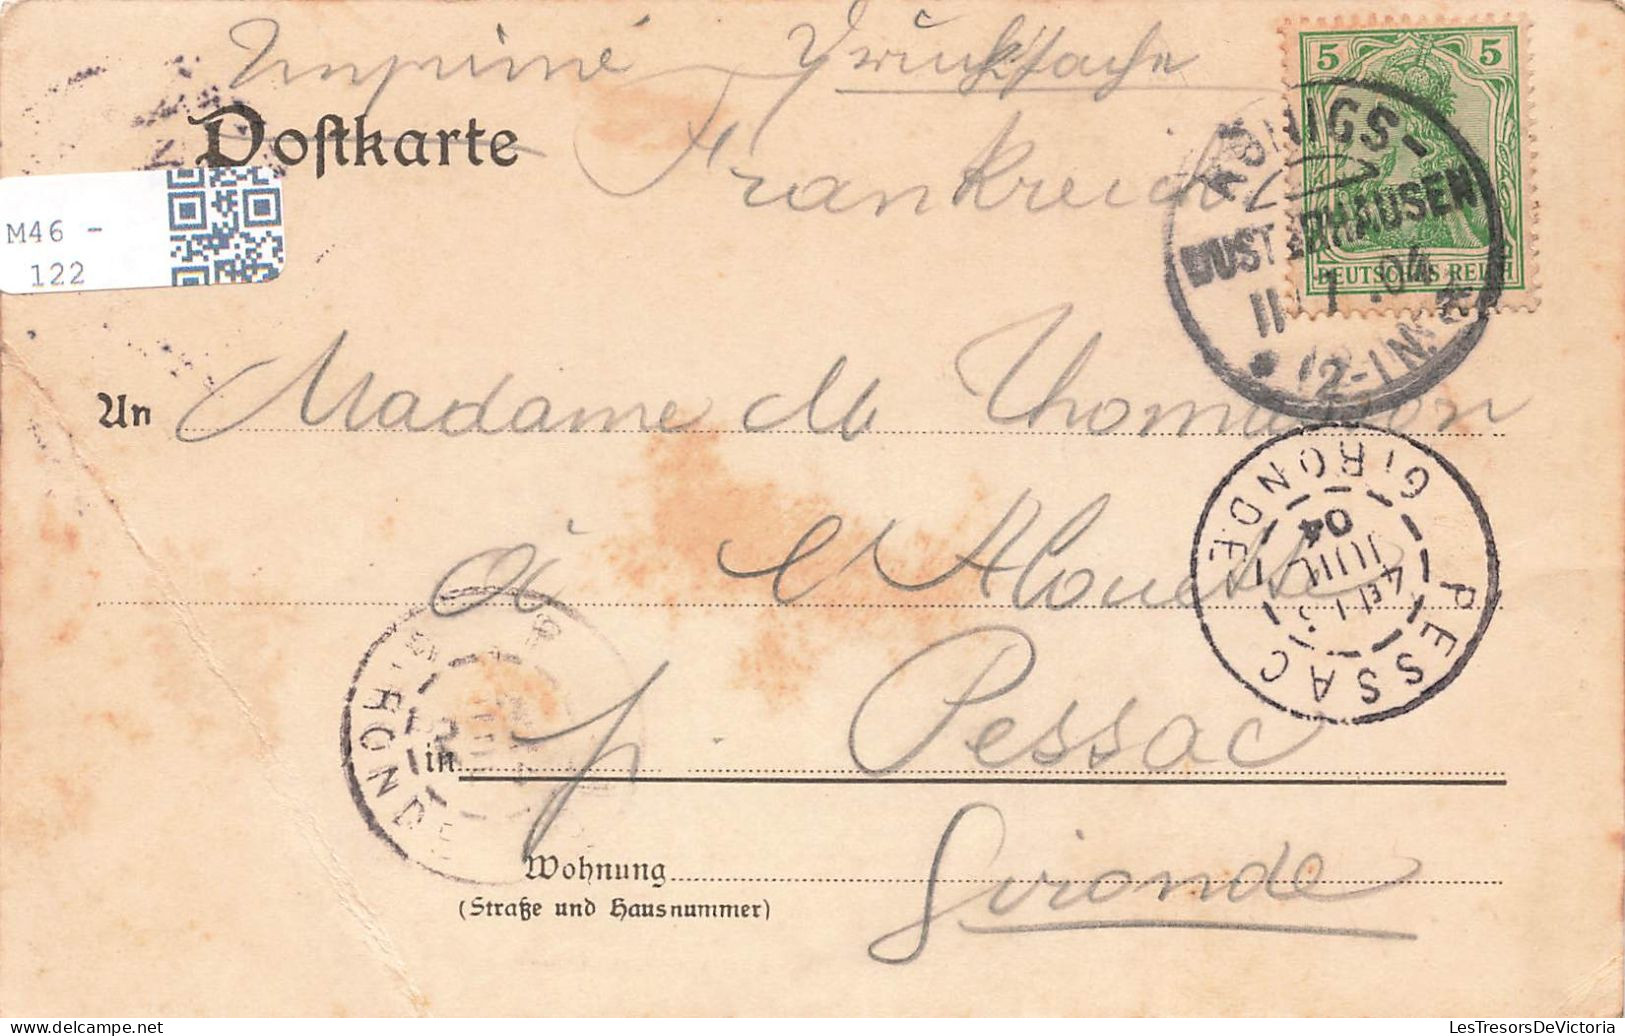 Imprimé Drucksache
Postkarte
Frankreich
5 5
DEUTSCHES REICH
KÖNIGS-
WUSTERHAUSEN
11 7 .04
12-1N.
M46 -
122
An Madame M Thomasson
GIRONDE
04
JUIL
PESSAC
à l'Alouette
GIRONDE
in p. Pessac
Gironde
Wohnung
(Straße und Hausnummer)
delcampe.net
LesTresorsDeVictoria